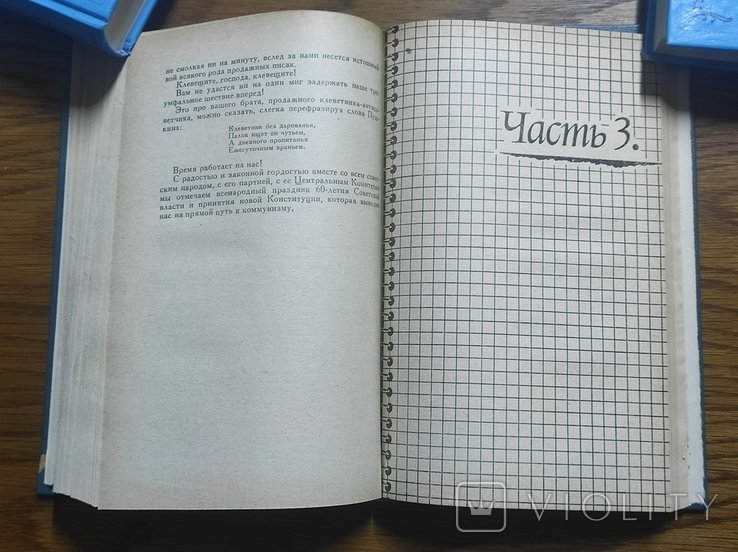 не смолкая ни на минуту, вслед за нами несется истошный
вой всякого рода продажных писак.
Клевещите, господа, клевещите!
Вам не удастся ни на один миг задержать наше три-
умфальное шествие вперед!
Это про вашего брата, продажного клеветника-антисо-
ветчика, можно сказать, слегка перефразируя слова Пуш-
кина:
Клеветник без дарованья,
Палок ищет он чутьем,
А дневного пропитанья
Ежесуточным враньем.
Время работает на нас!
С радостью и законной гордостью вместе со всем совет-
ским народом, с его партией, с ее Центральным Комитетом
мы отмечаем всенародный праздник 60-летия Советской
власти и принятия новой Конституции, которая выводит
нас на прямой путь к коммунизму.
Часть 3.
VIOLITY